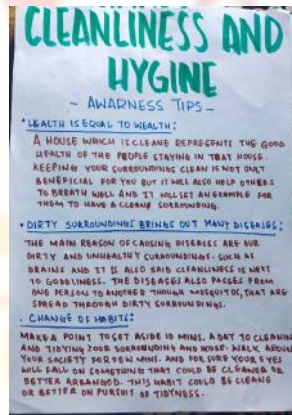 CLEANLINESS AND
HYGINE
- AWARNESS TIPS -
• HEALTH IS EQUAL TO WEALTH:
A HOUSE WHICH IS CLEANE REPRESENTS THE GOOD
HEALTH OF THE PEOPLE STAYING IN THAT HOUSE.
KEEPING YOUR SURROUNDINGS CLEAN IS NOT ONLY
BENEFICIAL FOR YOU BUT IT WILL ALSO HELP OTHERS
TO BREATH WELL AND IT WILL SET AN EXAMPLE FOR
THEM TO HAVE A CLEANE SURROUNDING.
• DIRTY SURROUNDINGS BRINGS OUT MANY DISEASES:
THE MAIN REASON OF CAUSING DISEASES ARE OUR
DIRTY AND UNHEALTHY SURROUNDINGS. SUCH AS
DRAINS AND IT IS ALSO SAID CLEANLINESS IS NEXT
TO GODDLINESS. THE DISEASES ALSO PASSES FROM
ONE PERSON TO ANOTHER THOUGH MOSQUITOS, THAT ARE
SPREAD THROUGH DIRTY SURROUNDINGS.
. CHANGE OF HABITS:
MAKE A POINT TO SET ASIDE 10 MINS. A DAY TO CLEANIN
AND TIDYING YOUR SURROUNDING AND HOUSE. WALK, AROUND
YOUR SOCIETY FOR FEW MINS. AND FOR SURE YOUR EYES
WILL FALL ON SOMETHING THAT COULD BE CLEANER OR
BETTER ARRANGED. THIS HABIT COULD BE CLEANE
OR BETTER ON PURSUIT OF TIDYNESS.